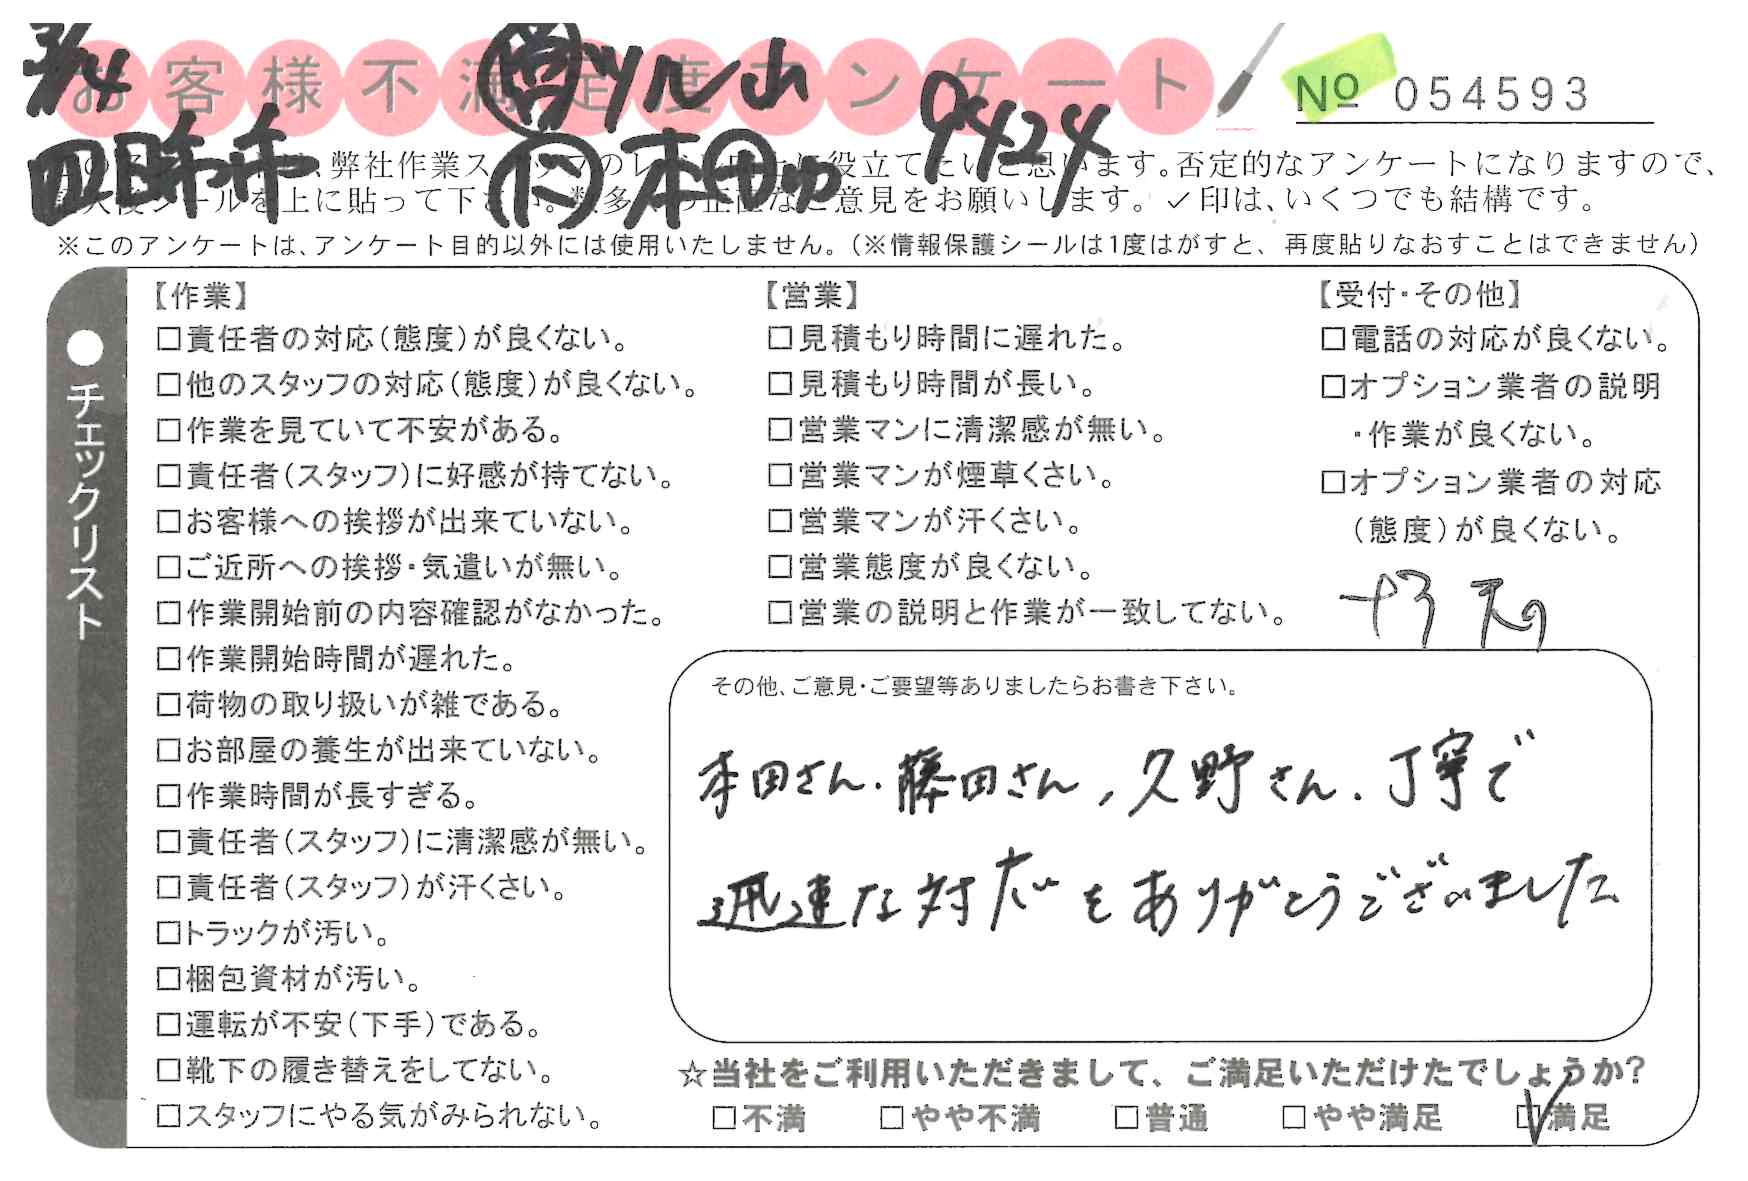 3/4
お客様不満足度アンケート
営 ツル山
9424
No 054593
四日市市
本田
弊社作業スタッフのレベル向上に役立てたいと思います。否定的なアンケートになりますので、
記入後シールを上に貼って下さい。数多くの正直なご意見をお願いします。✓印は、いくつでも結構です。
※このアンケートは、アンケート目的以外には使用いたしません。(※情報保護シールは1度はがすと、再度貼りなおすことはできません)
●チェックリスト
【作業】
□責任者の対応(態度)が良くない。
□他のスタッフの対応(態度)が良くない。
□作業を見ていて不安がある。
□責任者(スタッフ)に好感が持てない。
□お客様への挨拶が出来ていない。
□ご近所への挨拶・気遣いが無い。
□作業開始前の内容確認がなかった。
□作業開始時間が遅れた。
□荷物の取り扱いが雑である。
□お部屋の養生が出来ていない。
□作業時間が長すぎる。
□責任者(スタッフ)に清潔感が無い。
□責任者(スタッフ)が汗くさい。
□トラックが汚い。
□梱包資材が汚い。
□運転が不安(下手)である。
□靴下の履き替えをしてない。
□スタッフにやる気がみられない。
【営業】
□見積もり時間に遅れた。
□見積もり時間が長い。
□営業マンに清潔感が無い。
□営業マンが煙草くさい。
□営業マンが汗くさい。
□営業態度が良くない。
□営業の説明と作業が一致してない。
【受付・その他】
□電話の対応が良くない。
□オプション業者の説明
・作業が良くない。
□オプション業者の対応
(態度)が良くない。
その他、ご意見・ご要望等ありましたらお書き下さい。
本田さん、藤田さん、久野さん、丁寧で
迅速な対応をありがとうございました
☆当社をご利用いただきまして、ご満足いただけたでしょうか?
□不満 □やや不満 □普通 □やや満足 ☑満足